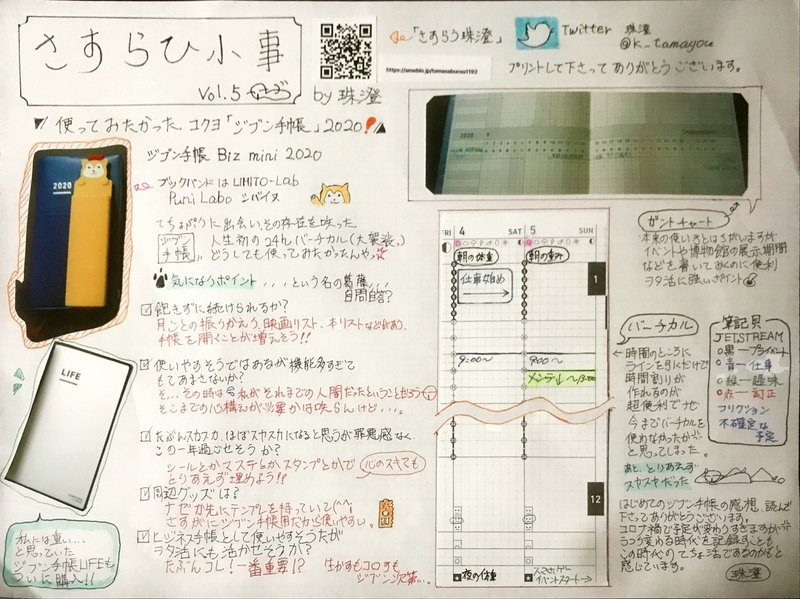 さすらひ小事
Vol.5
by 珠澄
「さすらう珠澄」
https://ameblo.jp/tamasaburou1192
Twitter 珠澄
@K_tamayou
プリントして下さって ありがとう ございます。
使っておたかった コクヨ「ジブン手帳」2020
ジブン手帳 Biz mini 2020
ブックバンドは LIHITO-Lab
Puni Labo シバイヌ
てちょぶりに出会い、その存在を
ジブン手帳
人生初の24h バーチカル(大袈裟。)
どうしても使っておたかったんや
気になりポイント...という名の葛藤...
自問自答?
飽きずに続けられるか?
月ごとの振りかえり、映画リスト、本リストなどがあり、
手帳を開くことが増えそう!!
使いやすそうではあるが機能多すぎて
もてあまさないか?
そ...その時は 私がそれまでの人間だったということだろう
そこまでの心構えが必要かは 知らんけど...。
たぶんスカスカ、ほぼスカスカになると思うが罪悪感なく
この一年過ごせそうか?
シールとかマステとかスタンプとかで
とりあえず埋めよう!!
心のスキマも
周辺グッズは?
ナゼか先にテンプレを持っていて(^^;
さすがにジブン手帳用だから使いやすい。
ビジネス手帳として使いやすそうだが
ヲタ活にも活かせそうか?
たぶんコレ!一番重要!?
生かすもコロすも
ジブン次第...。
2020
LIFE
おんには重い...
と思っていた
ジブン手帳LIFEも
ついに購入!!
2020
FRI 4 SAT 5 SUN
朝の体重
仕事始め
9:00〜
9:00〜
メンテ
1
12
夜の体重
スマホゲー
イベントスタート→
ガントチャート
本来の使い方とはちがいますが
イベントや博物館の展示期間
などを書いておくのに便利
ヲタ活に強いポイント
バーチカル
時間のところに
ラインを引くだけで
時間割りが
作れるのが
超便利でナゼ
今までバーチカルを
使わなかったか
と思ってしまった。
筆記具
JETSTREAM
黒ープライベート
青ー仕事
緑ー趣味
赤ー訂正
フリクション
不確定な
予定
あと、とりあえず
スカスカだった
はじめてのジブン手帳の感想、読んで
下さってありがとうございます。
コロナ禍で予定が変わりすぎますが
うつり変わる時代を記録することも
この時代のてちょ活であるのかもと
感じています。
珠澄